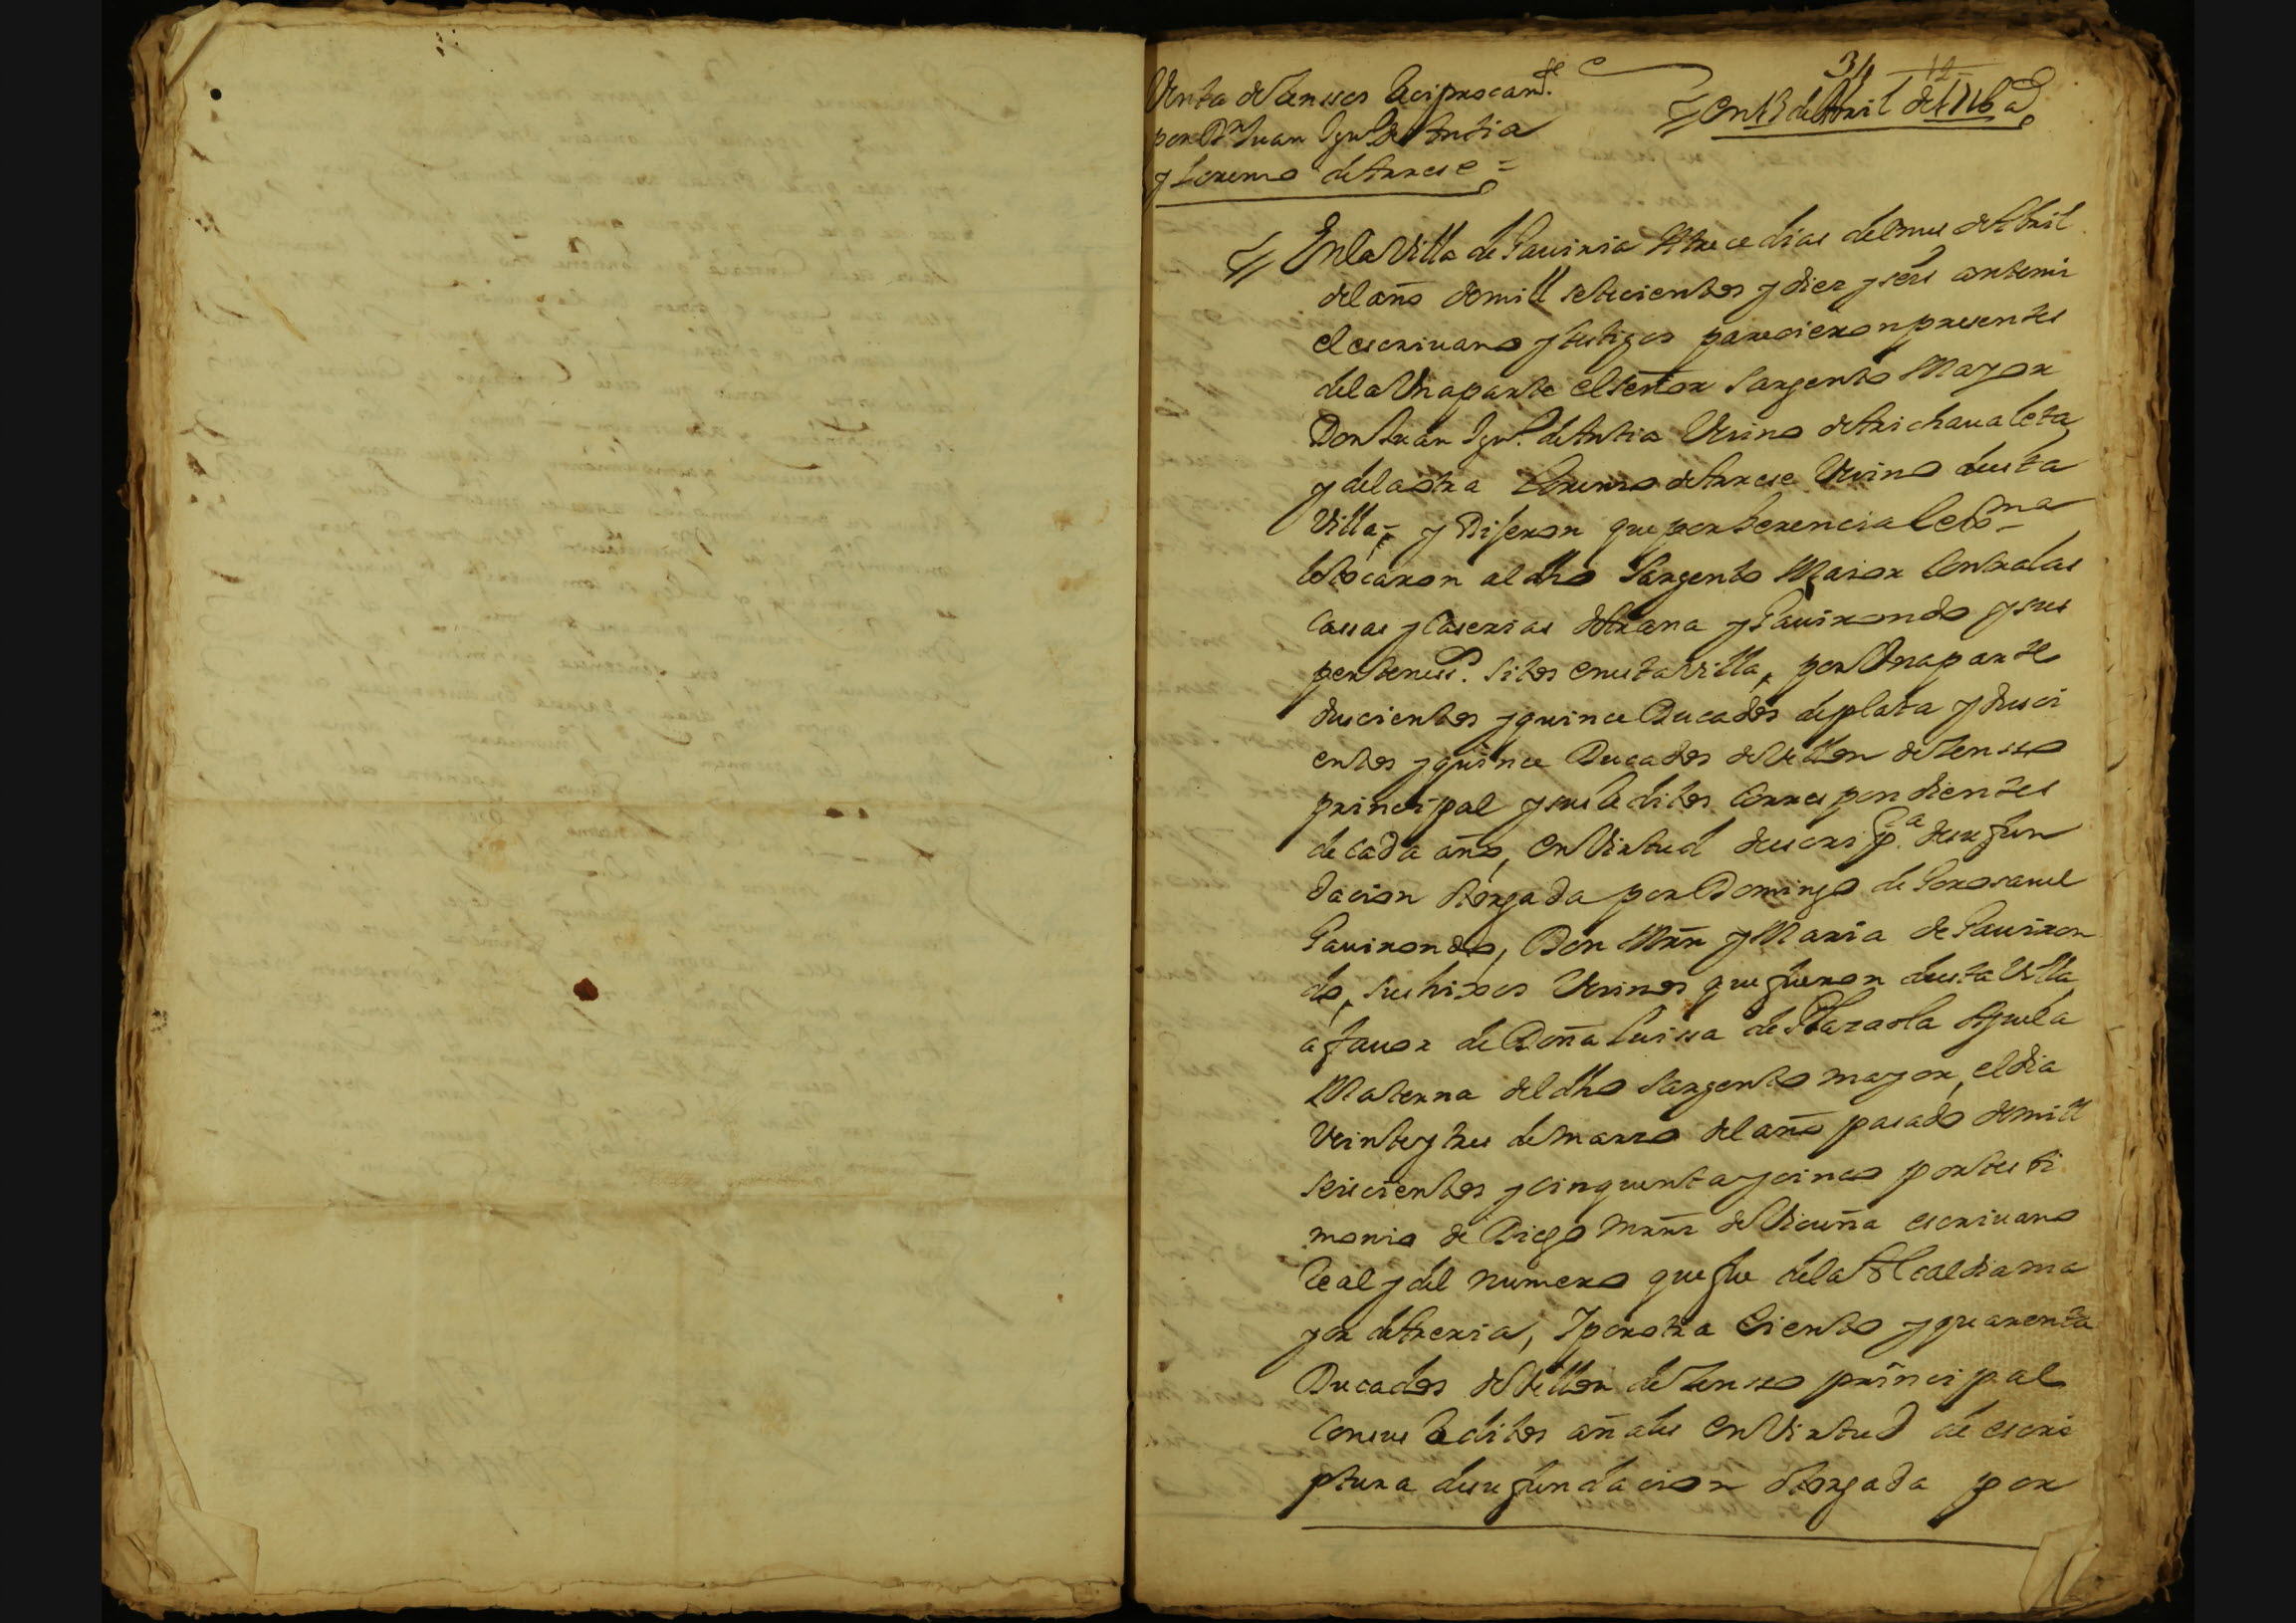 34 12
Venta de Zenssos Reciprocamte.
por Dn. Juan Ignº de Antia
y Lorenzo de Arrese =
En 13 de Abril de 1716 as
En la Villa de Gauiria A trece dias del mes de Abril
del año de mill setecientos y diez y seis ante mi
el escriuano y testigos parecieron presentes
de la Una parte el señor Sargento Mayor
Don Juan Ignº. de Antia Vecino de Arichaualeta
y de la otra Lorenzo de Arrese Vecino desta
Villa, = y Dijeron que por herencia lexma
le tocaron al dho Sargento Maior Contra las
Cassas y Caserias de Arana y Gauirondo y sus
perteness. sitos en esta Villa, por Una parte
duscientos y quince Ducados de plata y dusci
entos y quince Ducados de Vellon de Zensso
principal y sus Reditos Correspondientes
de cada año, en Virtud de escripª. de su fun
dacion otorgada por Domingo de Gorosauel
Gauirondo, Don Mrn y Maria de Gauiron
do, sus hixos Vecinos que fueron desta Villa
a fauor de Doña Luissa de Olazarla Aguela
Materna del dho Sargento mayor, el dia
Veinte y tres de marzo del año pasado de mill
seiscientos y cinquenta y cinco por testi
monio de Diego Mrnz de Vicuña escriuano
Real y del numero que fue de la Alcaldia ma
yor de Areria, Y por otra Ciento y quarenta
Ducados de Vellon de Zensso principal
Con sus Reditos añales en Virtud de escri
ptura de su fundacion otorgada por